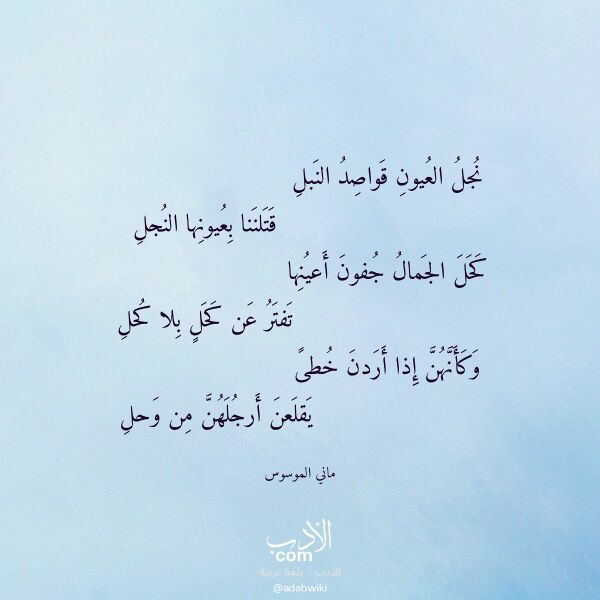 نُجلُ العُيونِ قَواصِدُ النَبلِ
قَتَلنَنا بِعُيونِها النُجلِ
كَحَلَ الجَمالُ جُفونَ أَعيُنِها
تَفتَرُ عَن كَحَلٍ بِلا كُحلِ
وَكَأَنَّهُنَّ إِذا أَرَدنَ خُطىً
يَقلَعنَ أَرجُلَهُنَّ مِن وَحلِ
ماني الموسوس
الأدب
com
الأدب .. بلغة عربية
@adabwiki